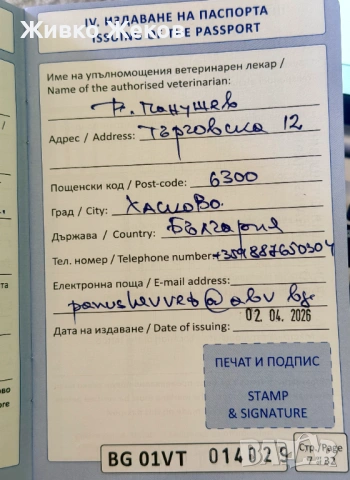 Живко Жеков
IV. ИЗДАВАНЕ НА ПАСПОРТА
ISSUING OF THE PASSPORT
Име на упълномощения ветеринарен лекар /
Name of the authorised veterinarian:
Панушев
Адрес / Address: Търговска 12
Пощенски код / Post-code: 6300
Град / City: Хасково
Държава / Country: България
Тел. номер / Telephone number: +359887650304
Електронна поща / E-mail address:
panushevvet@abv.bg
02. 04. 2026
Дата на издаване / Date of issuing:
ПЕЧАТ И ПОДПИС
STAMP
& SIGNATURE
BG 01VT 014029
Стр./Page
7 - 32